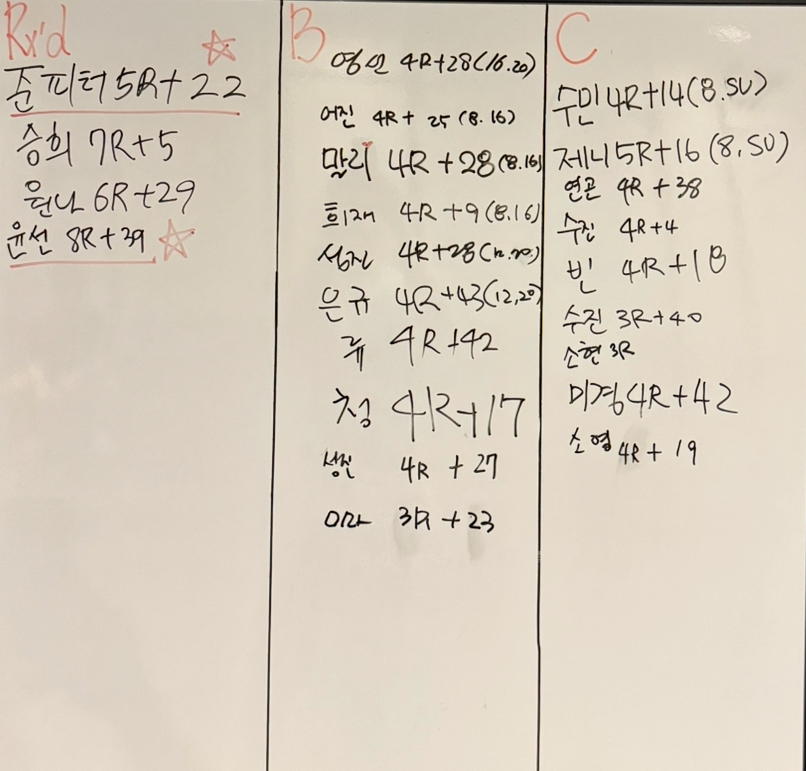 Rx'd
준피터 5R+22
승희 7R+5
원나 6R+29
윤선 8R+39
B
영인 4R+28(16.20)
어진 4R+25(8.16)
말리 4R+28(8.16)
희재 4R+9(8.16)
성진 4R+28(12.20)
은규 4R+43(12,20)
류 4R+42
청 4R+17
성진 4R+27
미라 3R+23
C
수민 4R+14(8.SU)
제니 5R+16(8,SU)
연곤 4R+38
수진 4R+4
빈 4R+18
수진 3R+40
소현 3R
미경 4R+42
소영 4R+19